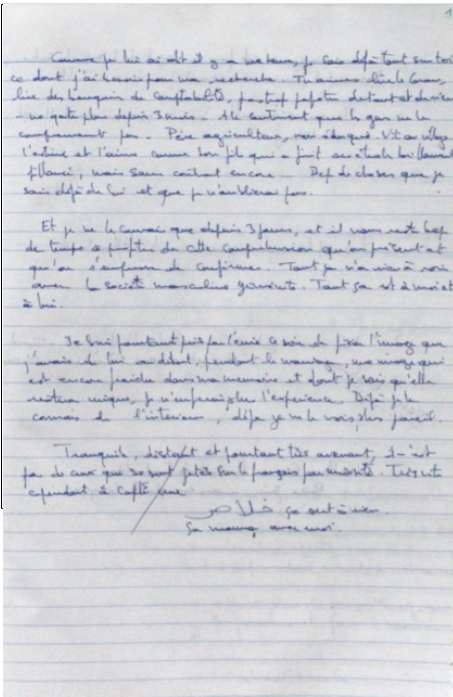 1
Comme je lui ai dit il y a une heure, je sais déjà tout sur toi
ce dont j'ai besoin pour ma recherche. Tu aimes lire le Coran,
lire des bouquins de comptabilité, pas trop
depuis 3 mois. A le sentiment que les gens ne le
comprennent pas. Père agriculteur, Vit au village
l'estime et l'aime comme son fils qui a fait
fiancé, mais sans encore... Bcp de choses que je
sais déjà de lui et que je n'oublierai pas.
Et je ne le connais que depuis 3 jours, et il nous reste bcp
de temps à profiter de cette compréhension qu'on pressent et
qu'on s'en de confirmer. Tout ça n'a rien à voir
avec la société masculine yéménite. Tout ça est à moi et
à lui.
Je suis pourtant pris par l'envie ce soir de fixer l'image que
j'avais de lui au début, pendant le mariage, une image qui
est encore fraîche dans ma mémoire et dont je sais qu'elle
restera unique, l'expérience. Déjà je le
connais de l'intérieur, déjà je ne le vois plus pareil.
Tranquile, distant et pourtant très avenant, il n'est
pas de ceux qui se sont jetés sur le français par curiosité.
cependant à capté une
خلاص ça sert à rien
ça mourra avec moi.